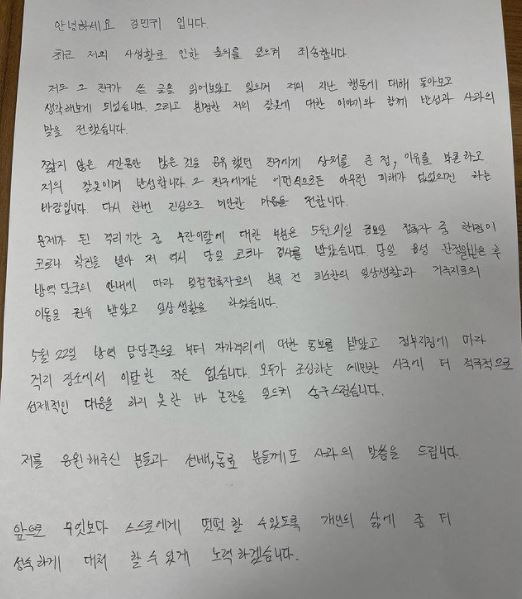 안녕하세요 김민귀 입니다.
최근 저의 사생활로 인한 물의를 일으켜 죄송합니다.
저또 그 친구가 쓴 글을 읽어보았고 있으며 저의 지난 행동에 대해 돌아보고
생각해보게 되었습니다. 그리고 분명한 저의 잘못에 대한 이야기와 함께 반성과 사과의
말을 전했습니다.
짧지 않은 시간동안 많은 것을 공유했던 친구에게 상처를 준 점, 이유를 막론하고
저의 잘못이며 반성합니다. 그 친구에게는 어떤식으로든 아무런 피해가 없었으면 하는
바람입니다. 다시 한번 진심으로 미안한 마음을 전합니다.
문제가 된 격리기간 중 무단이탈에 대한 부분은 5월 21일 금요일 접촉자 중 한명이
코로나 확진을 받아 저 역시 당일 코로나 검사를 받았습니다. 당일 음성 판정을 받은 후
방역 당국의 안내에 따라 밀접접촉자로의 분류 전 최소한의 일상생활과 거주지로의
이동을 권유 받았고 일상생활을 하였습니다.
5월 22일 방역 담당관으로 부터 자가격리에 대한 통보를 받았고 정부지침에 따라
격리 장소에서 이탈한 적은 없습니다. 모두가 조심하는 예민한 시국에 더 적극적으로
선제적인 대응을 하지 못 한 바 논란을 일으켜 송구스럽습니다.
저를 응원해주신 분들과 선배, 동료 분들께도 사과의 말씀을 드립니다.
앞으로 무엇보다 스스로에게 떳떳 할 수 있도록 개인의 삶에 좀 더
성숙하게 대처 할 수 있게 노력하겠습니다.